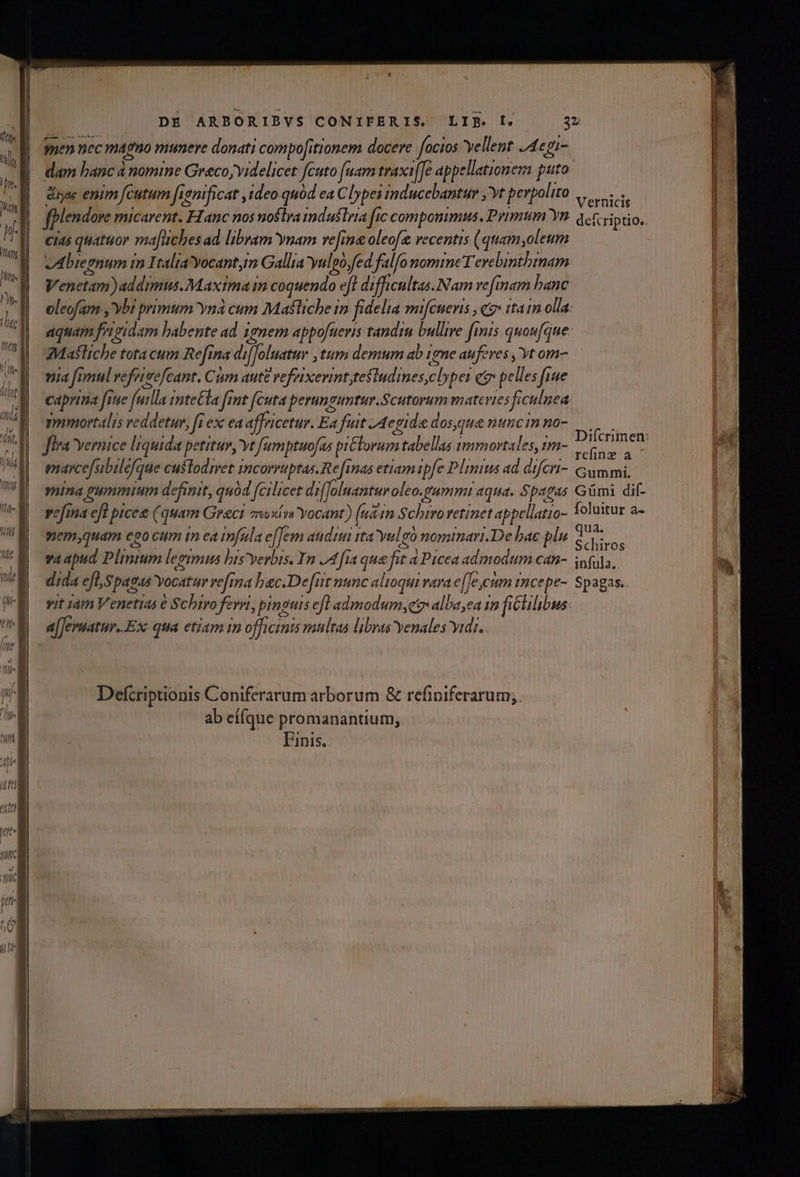 DE ARBORIBVS CONIFERIS. LIB. I. 32
men nec magno munere donati compositionem docere socios vellent. Aegi-
dam hanc à nomine Græco, videlicet scuto suam traxisse appellationem puto
enim scutum significat, ideo quòd ea Clypei inducebantur, vt perpolito
splendore micarent. Hanc nos nostra industria sic componimus. Primum vn
cias quatuor mastiches ad libram vnam resinæ oleosæ recentis (quam, oleum
Abiegnum in Italia vocant, in Gallia vulgò, sed falso nomine Terebinthinam
Venetam) addimus. Maxima in coquendo est difficultas. Nam resinam hanc
oleosam, vbi primum vnà cum Mastiche in fidelia miscueris, & ita in olla
aquam frigidam habente ad ignem apposueris tandiu bullire sinis quousque
Mastiche tota cum Resina dissoluatur, tum demum ab igne auferes, vt om-
nia simul refrigescant. Cùm autē refrixerint, testudines, clypei & pelles siue
caprina siue suilla intecta sint scuta perunguntur. Scutorum materies ficulnea
immortalis redditur, si ex ea affricetur. Ea fuit Aegidæ dos, quæ nunc in no-
stra vernice liquida petitur, vt sumptuosas pictorum tabellas immortales, im-
marcesabilésque custodiret incorruptas. Resinas etiam ipse Plinius ad discri-
mina gummium definit, quòd scilicet dissoluantur oleo, gummi aqua. Spagas
resina est piceæ (quam Græci vocant) suā in Schiro retinet appellatio-
nem, quam ego cum in ea insula essem audiui ita vulgò nominari. De hac plu
ra apud Plinium legimus his verbis. In Asia quæ fit à Picea admodum can-
dida est, Spagas vocatur resina hæc. Desiit nunc alioqui rara esse, cum incepe-
rit iam Venetias è Schiro ferri, pinguis est admodum, & alba, ea in fictilibus
asseruatur. Ex qua etiam in officinis multas libras venales vidi.
Vernicis
descriptio.
Discrimen
resinæ a
Gummi.
Gūmi dis-
soluitur a-
qua.
Schiros
insula.
Spagas.
Descriptionis Coniferarum arborum & resiniferarum,
ab eísque promanantium,
Finis.